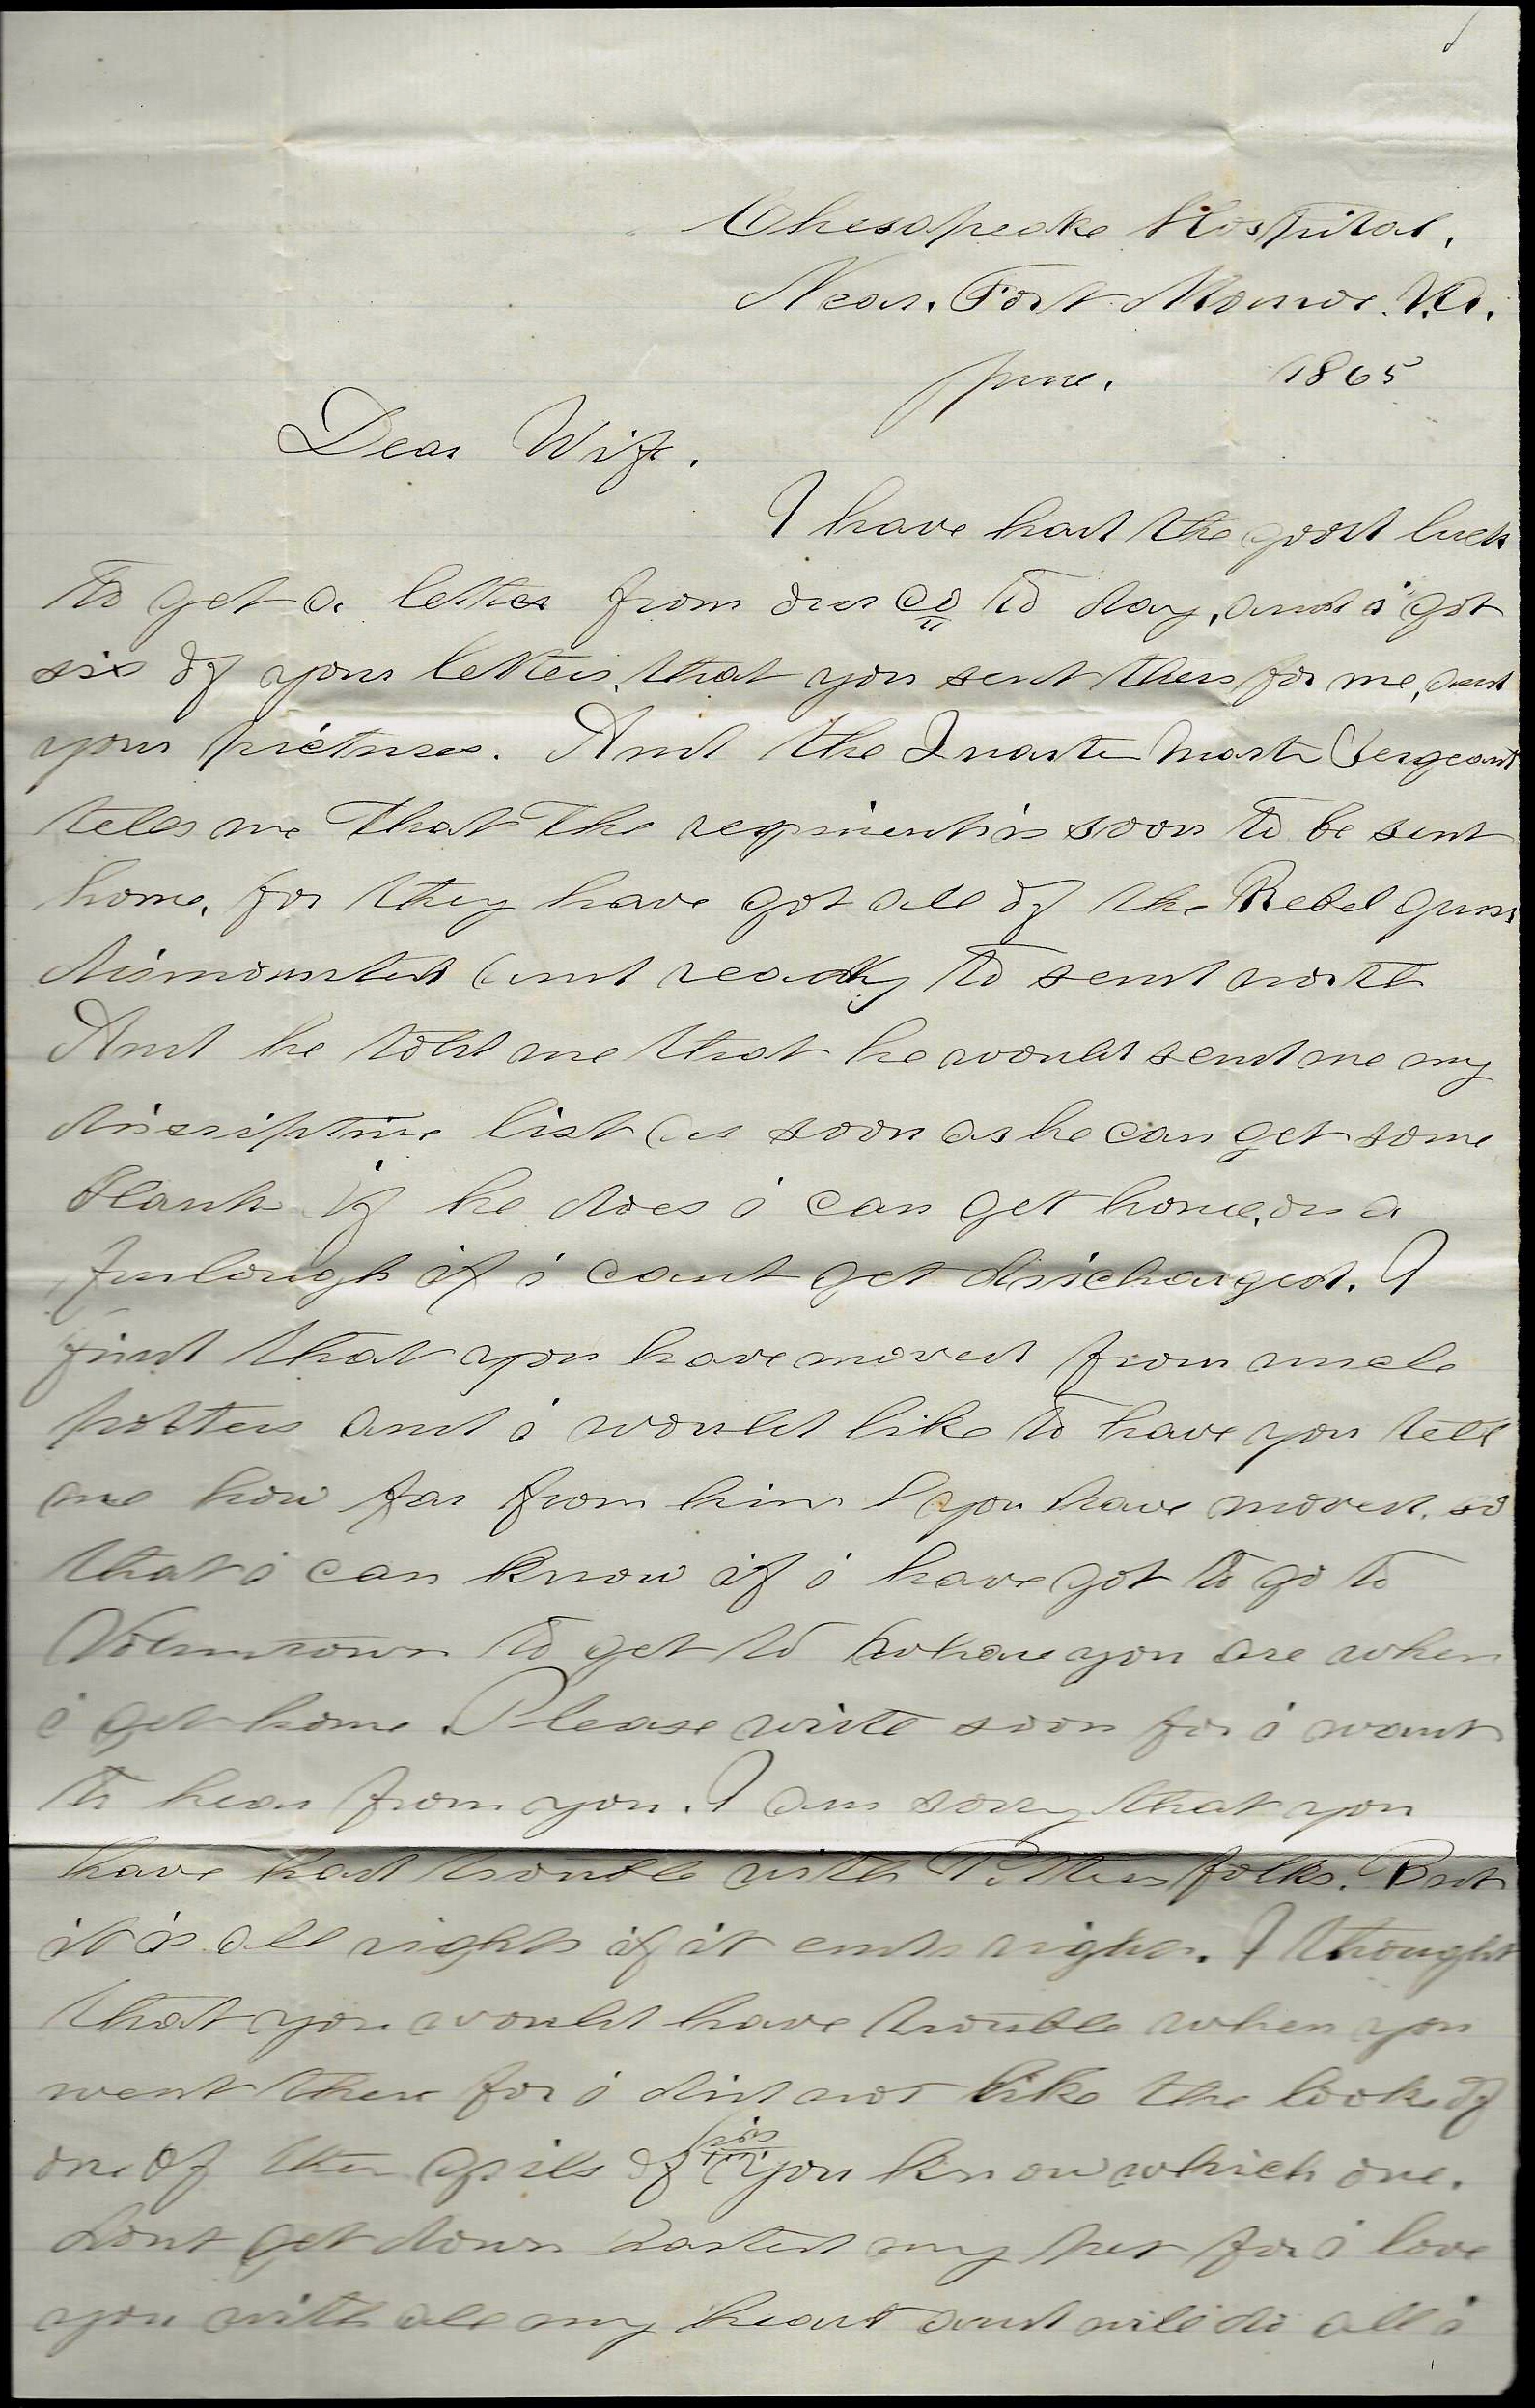 Chesapeake Hospital,
Near, Fort Monroe. Va.
June. 1865
Dear Wife.
I have had the good luck
to get a letter from our Co to day, and i got
six of your letters, that you sent there for me, and
your pictures. And the Quarter Master Sergeant
tells me that the regiment is soon to be sent
home, for they have got all of the Rebel guns
dismounted and ready to send north
And he told me that he would send me my
discriptive list as soon as he can get some
blank if he does i can get home, on a
furlough if i cant get discharged. I
find that you have moved from uncle
potters and i would like to have you tell
me how far from him you have moved, so
that i can know if i have got to go to
Voluntown to get to where you are when
i get home. Please write soon for i want
to hear from you. I am sorry that you
have had trouble with Potters folks. But
it is all right if it ends right. I thought
that you would have trouble when you
went there for i did not like the look of
one of the girls of his you know which one.
dont get down harted my pet for i love
you with all my heart and will do all i